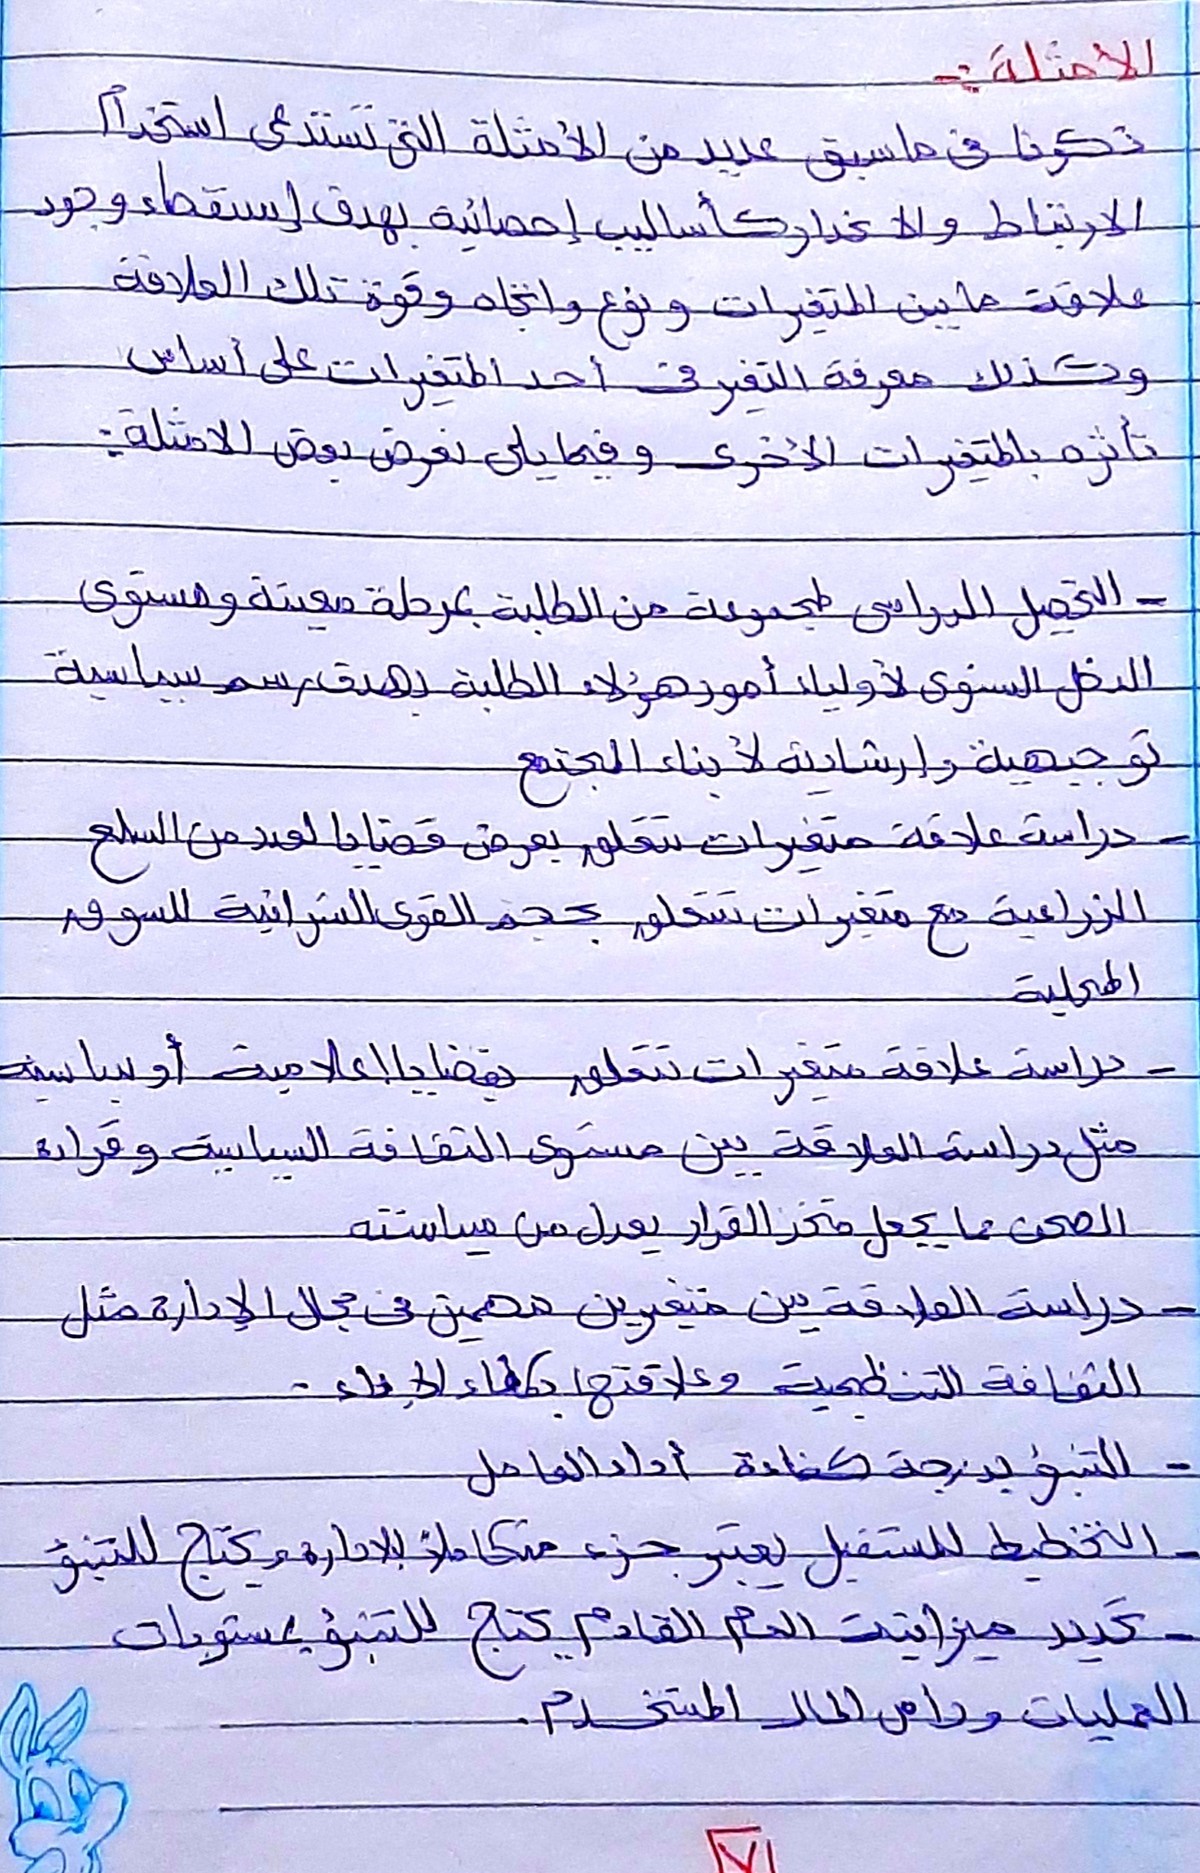 الأمثلة :-
ذكرنا في ما سبق عديد من الأمثلة التي تستدعي استخدام
الارتباط والانحدار كأساليب إحصائية بهدف إستقصاء وجود
علاقة ما بين المتغيرات ونوع واتجاه وقوة تلك العلاقة
وكذلك معرفة التغير في أحد المتغيرات على أساس
تأثره بالمتغيرات الأخرى وفيما يلي نعرض بعض الامثلة :
- التحصيل الدراسي لمجموعة من الطلبة بمرحلة معينة ومستوى
الدخل السنوي لأولياء أمور هؤلاء الطلبة بهدف رسم سياسية
توجيهية وإرشادية لأبناء المجتمع
- دراسة علاقة متغيرات تتعلق بعرض قضايا لعدد من السلع
الزراعية مع متغيرات تتعلق بحجم القوى الشرائية للسوق
المحلية
- دراسة علاقة متغيرات تتعلق بقضايا اعلامية أو سياسية
مثل دراسة العلاقة بين مستوى الثقافة السياسية وقراءة
الصحف مما يجعل متخذ القرار يعدل من سياسته
- دراسة العلاقة بين متغيرين مهمين في مجال الإدارة مثل
الثقافة التنظيمية وعلاقتها بكفاءة الاداء -
- التنبؤ بدرجة كفاءة أداء العامل
- التخطيط للمستقبل يعتبر جزء متكاملاً للادارة ويحتاج للتنبؤ
- تحديد ميزانيت العام القادم يحتاج للتنبؤ بمستويات
العمليات وراس المال المستخدم.
٧١